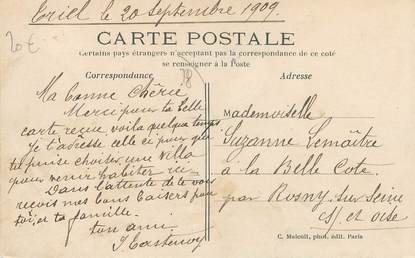 Triel le 20 Septembre 1909.
20 €
CARTE POSTALE
Certains pays étrangers n'acceptant pas la correspondance de ce coté
se renseigner à la Poste
Correspondance
78
Ma bonne Chérie
Merci pour ta belle
carte reçue, voila quelque temps
Je t'adresse celle ci pour que
tu puise choisir une villa
pour venir habiter ici
Dans l'attente de te voir
reçois mes bons baisers pour
toi, et ta famille.
ton ami
Adresse
Mademoiselle
Suzanne Lemaître
à la Belle Cote
par Rosny sur Seine
S. et oise
C. Malcuit, phot. édit. Paris